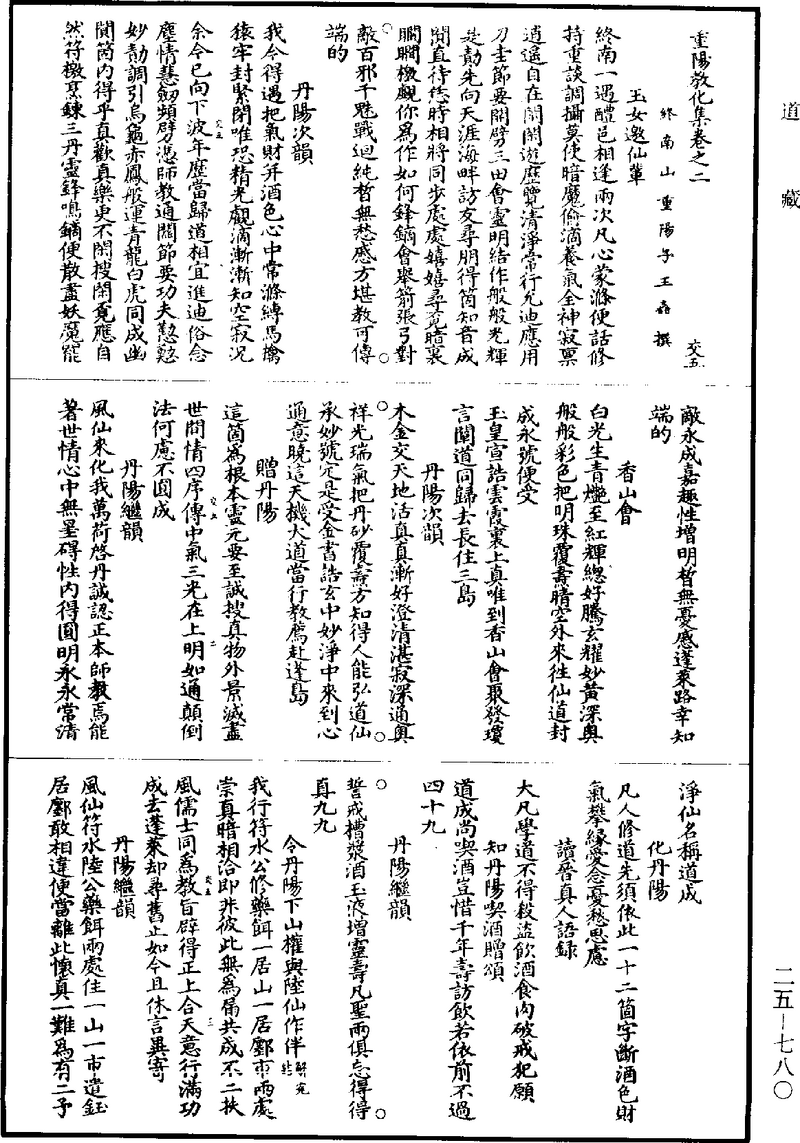 道藏
重陽教化集卷之二
交五
終南山重陽子王嚞撰
玉女邀仙輩
終南一遇醴邑相逢兩次凡心蒙滌便話修
持重談調攝莫使暗魔偷滴養氣全神寂稟
逍遥自在閑閑遊歷覽清淨常行允迪應用
刀圭節要開劈三田會靈明結作般般光輝
是勣先向天涯海畔訪友尋朋得箇知音成
閴直待恁時相將同步處處嬉嬉尋覓暗裏
瞯瞯檄觀你爲作如何鋒鏑會舉箭張弓對
敵百邪千魅戰迴純皙無愁應方堪教可傳
端的
丹陽次韻
我今得遇把氣財并酒色心中常滌縛馬擒
猿牢封緊閉唯恐精光觀滴漸漸知空寂况
余今已向下波年塵當歸道相宜進迪俗念
塵情慧劒頻劈憑師教通關節要功夫懃懃
妙勣調引烏龜赤鳳般運青龍白虎同成幽
閴箇内得乎真歡真樂更不閑搜閑覓應自
然符檄烹鍊三丹靈鋒鳴鏑便散盡妖魔能
敵永成嘉趣性增明皙無憂慼蓬萊路幸知
端的
香山會
白光生青艷至紅輝總好騰玄耀妙黄深奥
般般彩色把明珠覆燾晴空外來往仙道封
成永號便受
玉皇宣誥雲霞裏上真唯到香山會聚發瓊
言闡道同歸去長住三島
丹陽次韻
木金交天地活真真漸好澄清湛寂深通奥
祥光瑞氣把丹砂覆燾方知得人能弘道仙
承妙號定是受金書誥玄中妙淨中來到心
通意曉這天機大道當行教薦赴蓬島
贈丹陽
這箇爲根本靈元要至誠搜真物外景滅盡
世間情四序傳中氣三光在上明如通顛倒
法何慮不圓成
丹陽繼韻
風仙來化我萬荷啓丹誠認正本師教焉能
著世情心中無罣礙性内得圓明永永常清
淨仙名稱道成
化丹陽
凡人修道先須依此一十二箇字斷酒色財
氣攀緣愛念憂愁思慮
讀晉真人語録
大凡學道不得殺盜飲酒食肉破戒犯願
知丹陽喫酒贈頌
道成尚喫酒豈惜千年壽訪飲若依前不過
四十九
丹陽繼韻
誓戒槽漿酒玉液增靈壽凡聖兩俱忘得得
真九九
令丹陽下山權與陸仙作伴
我行符水公修藥餌一居山一居酈市兩處
崇真暗相洽即非彼此無爲屬共成不二扶
風儒士同爲教旨辟得正上合天意行滿功
成去蓬萊却尋舊止如今且休言異寄
丹陽繼韻
風仙符水陸公藥餌兩處住一山一市遣鈺
居酈敢相違便當離此懷真一難爲有二予
二五—七八〇